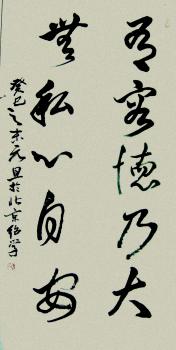 有容德乃大
無私心自安
癸巳之末元旦於北京紹学